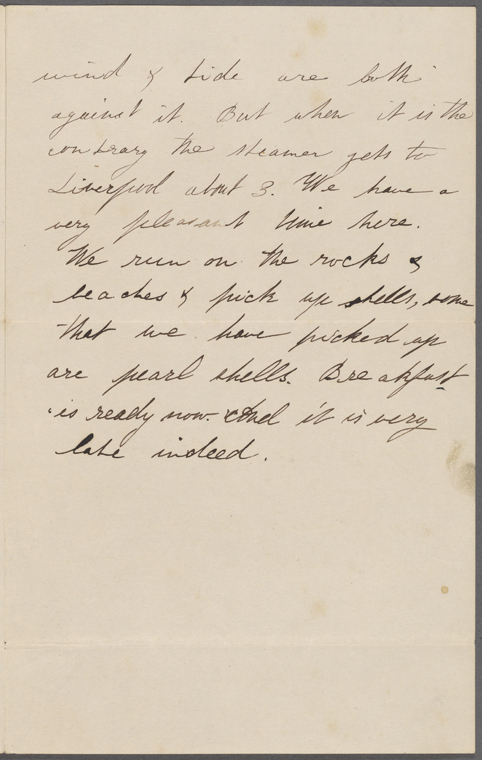 wind & tide are both
against it. But when it is the
contrary the steamer gets to
Liverpool about 3. We have a
very pleasant time here.
We run on the rocks &
beaches & pick up shells, some
that we have picked up
are pearl shells. Breakfast
is ready now. And it is very
late indeed.